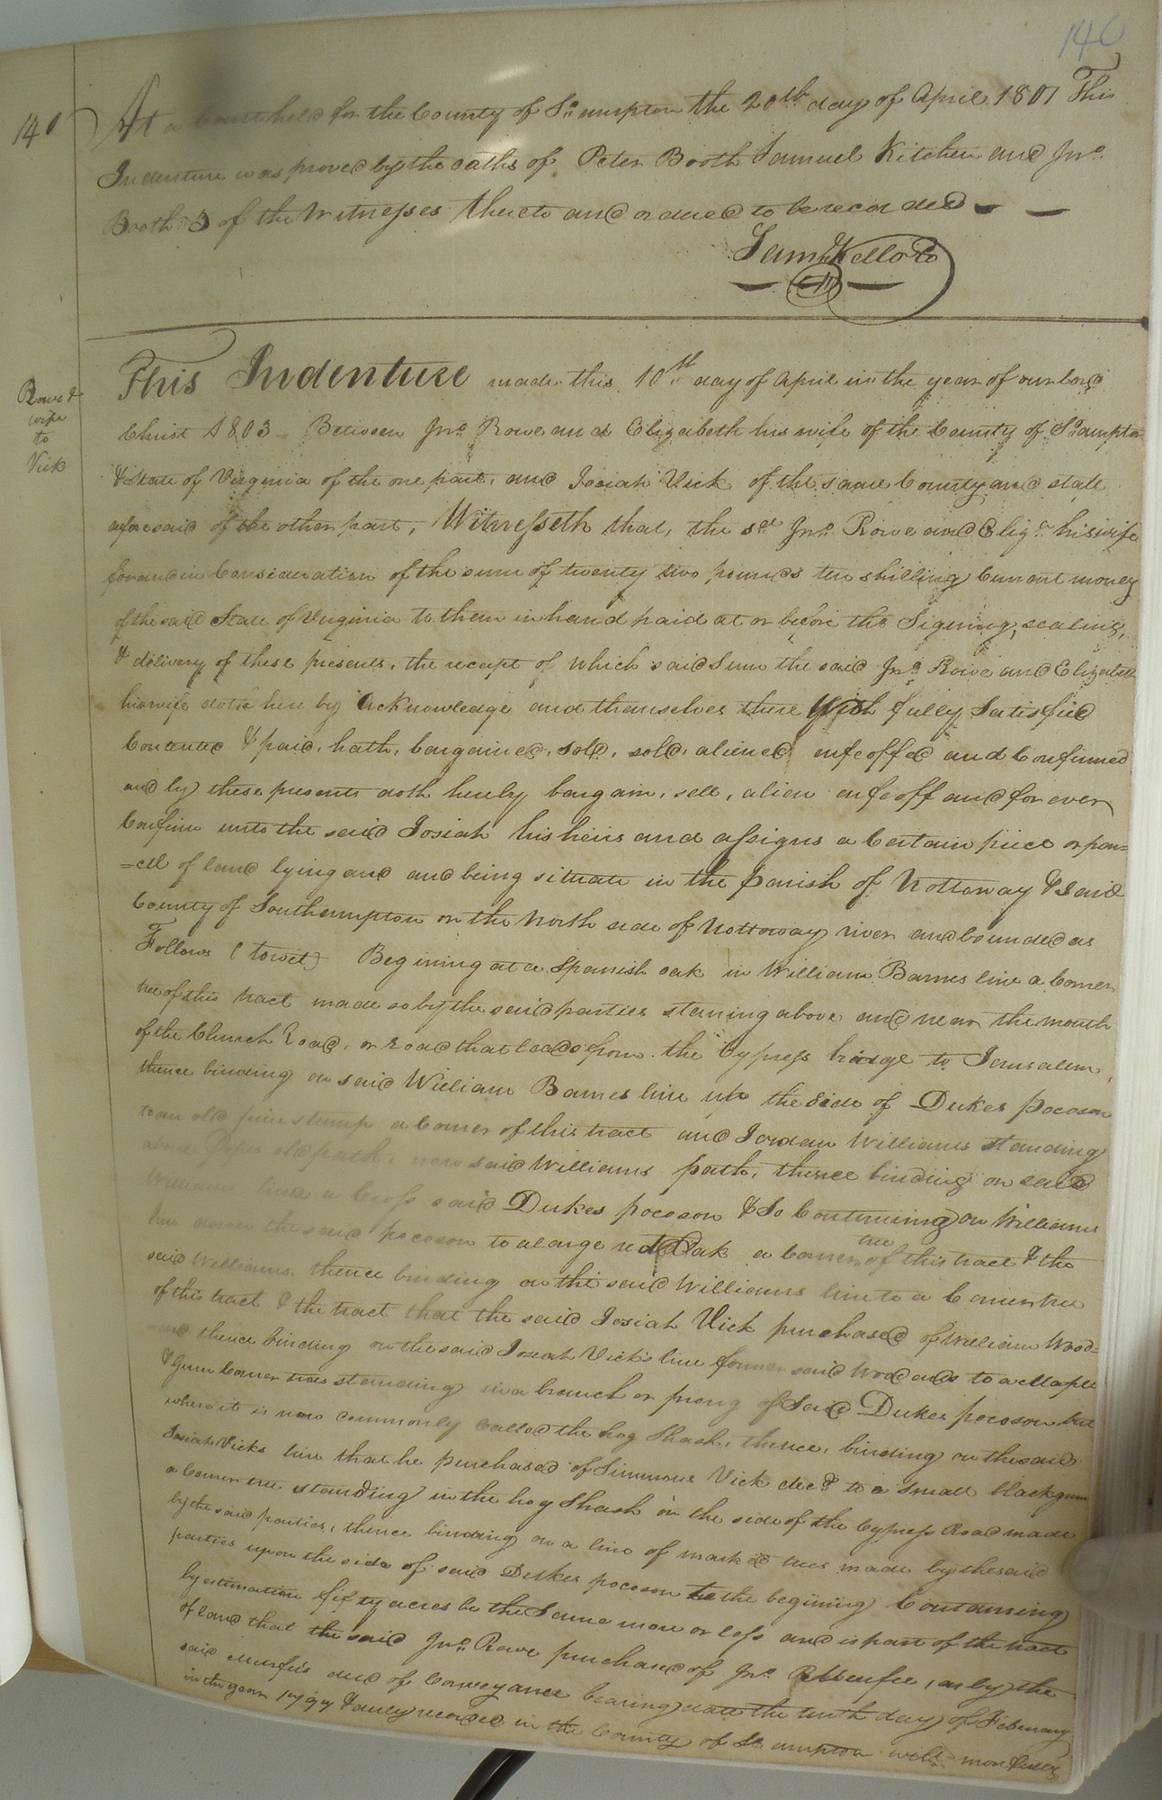 140
140
At a Court held for the County of So. ampton the 20th day of April 1801 This
Indenture was proved by the oaths of Peter Booth Samuel Kitchen and Jno.
Booth 3 of the Witnesses thereto and ordered to be recorded
Saml Kello Cc
Rowe &
wife
to
Vick
This Indenture made this 10th day of April in the year of our lord
Christ 1803 Between Jno. Rowe and Elizabeth his wife of the County of So. ampton
& State of Virginia of the one part, and Josiah Vick of the same County and state
aforesaid of the other part, Witnesseth that, the sd. Jno. Rowe and Eliza. his wife
for and in Consideration of the sum of twenty two pounds ten shilling Current money
of the said State of Virginia to them in hand paid at or before the Signing, sealing,
& delivery of these presents, the receipt of which said Sum the said Jno. Rowe and Elizabeth
his wife doth here by acknowledge and themselves there with fully Satisfied
Contented & paid, hath, bargained, sold, sold, aliened enfeoffed and Confirmed
and by these presents doth hereby bargain, sell, alien enfeoff and for ever
Confirm unto the said Josiah his heirs and assigns a Certain piece or par=
=cell of land lying and and being situate in the parish of Nottoway & said
County of Southampton on the north side of Nottoway river and bounded as
Follows (towit) Begining at a Spanish oak in William Barnes line a Corner
tree of this tract made so by the said parties staning above and near the mouth
of the Church Road, or road that leads from the Cypress bridge to Jerusalem,
thence binding on said William Barnes line up the side of Dukes pocoson
to an old pine stump a Corner of this tract and Jordan Williams standing
above old path, now said Williams path, thence binding on said
Williams line a Cross said Dukes pocoson & So Continuing on Williams
line across the said pocoson to a large red Oak a Corner tree of this tract & the
said Williams thence binding on the said Williams line to a Corner tree
of this tract & the tract that the said Josiah Vick purchased of William Wood=
thence binding on the said Josiah Vick's line former said Woodards to a Maple
& Gum Corner trees standing in a branch or prong of Said Dukes pocoson but
where it is now commonly called the hog Shash, thence, binding on the said
Josiah Vicks line that he purchased of Simmons Vick decd. to a small blackgum
a Corner tree standing in the hog Shash on the side of the Cypress Road made
by the said parties, thence binding on a line of mark'd trees made by the said
parties upon the side of said Dukes pocoson to the begining Containing
by estimation fifty acres be the Same more or less and is part of the tract
of land that the said Jno. Rowe purchased of Jno. Murfee, as by the
said Murfee's deed of Conveyance bearing date the tenth day of February
in the year & duly recorded in the County of So. ampton will more fully